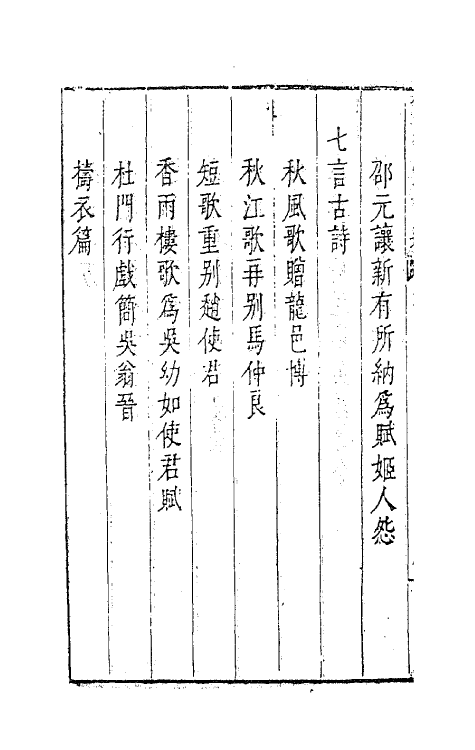 邵元讓新有所納爲賦姬人怨
七言古詩
秋風歌贈龍邑博
秋江歌再別馬仲良
短歌重別趙使君
香雨樓歌爲吳幼如使君賦
杜門行戲簡吳翁晉
擣衣篇